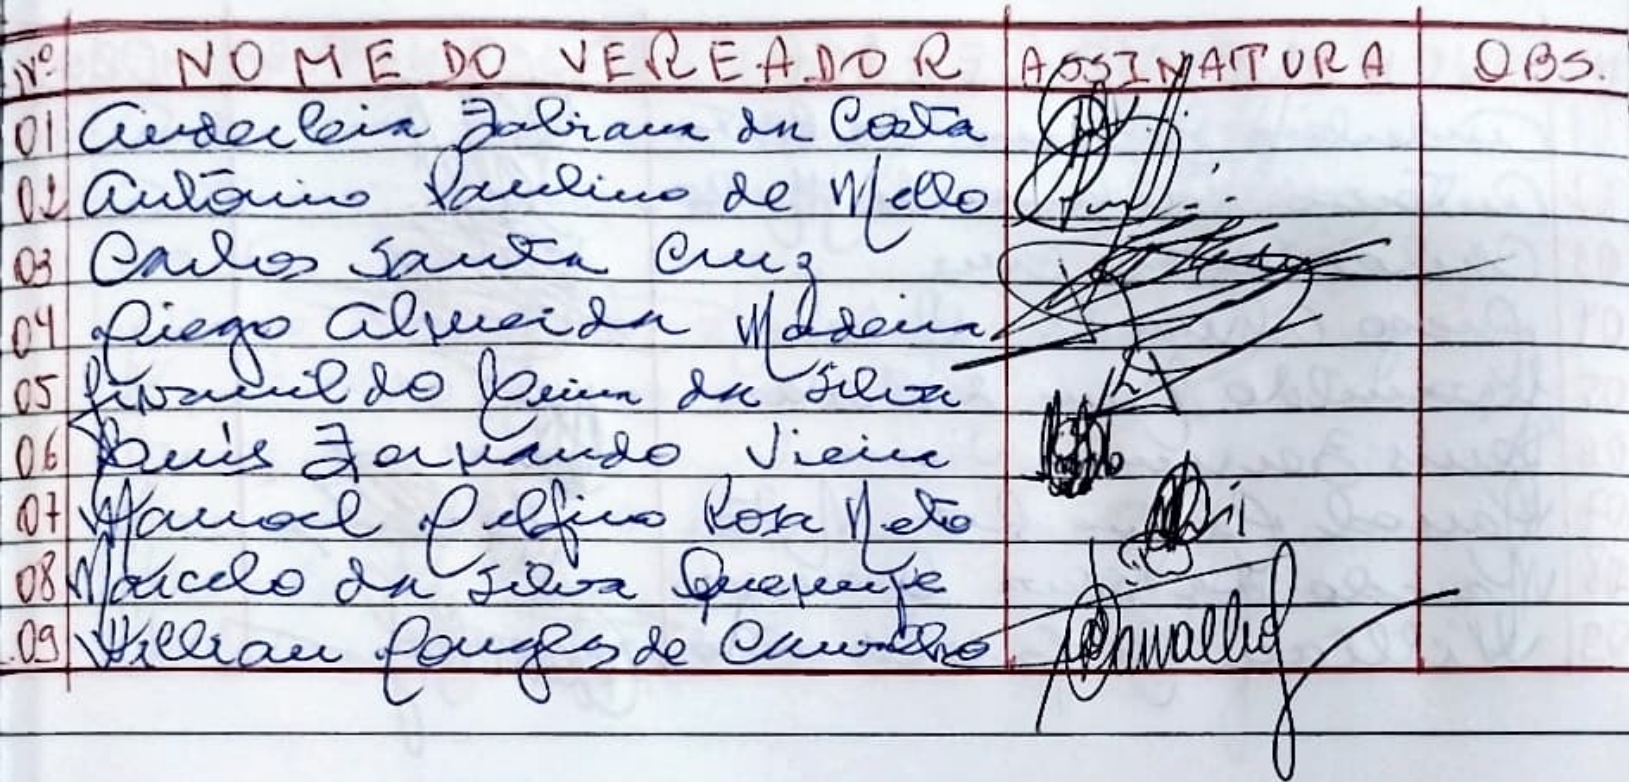 Nº NOME DO VEREADOR ASSINATURA OBS.
01 Anderleia Fabiana da Costa
02 Antônio Paulino de Mello
03 Carlos Santa Cruz
04 Diego Almeida Madeira
05 Jivanildo da Silva
06 Luís Fernando Vieira
07 Manoel Delfino Rosa Neto
08 Marcelo da Silva
09 Willian Douglas de Carvalho Carvalho